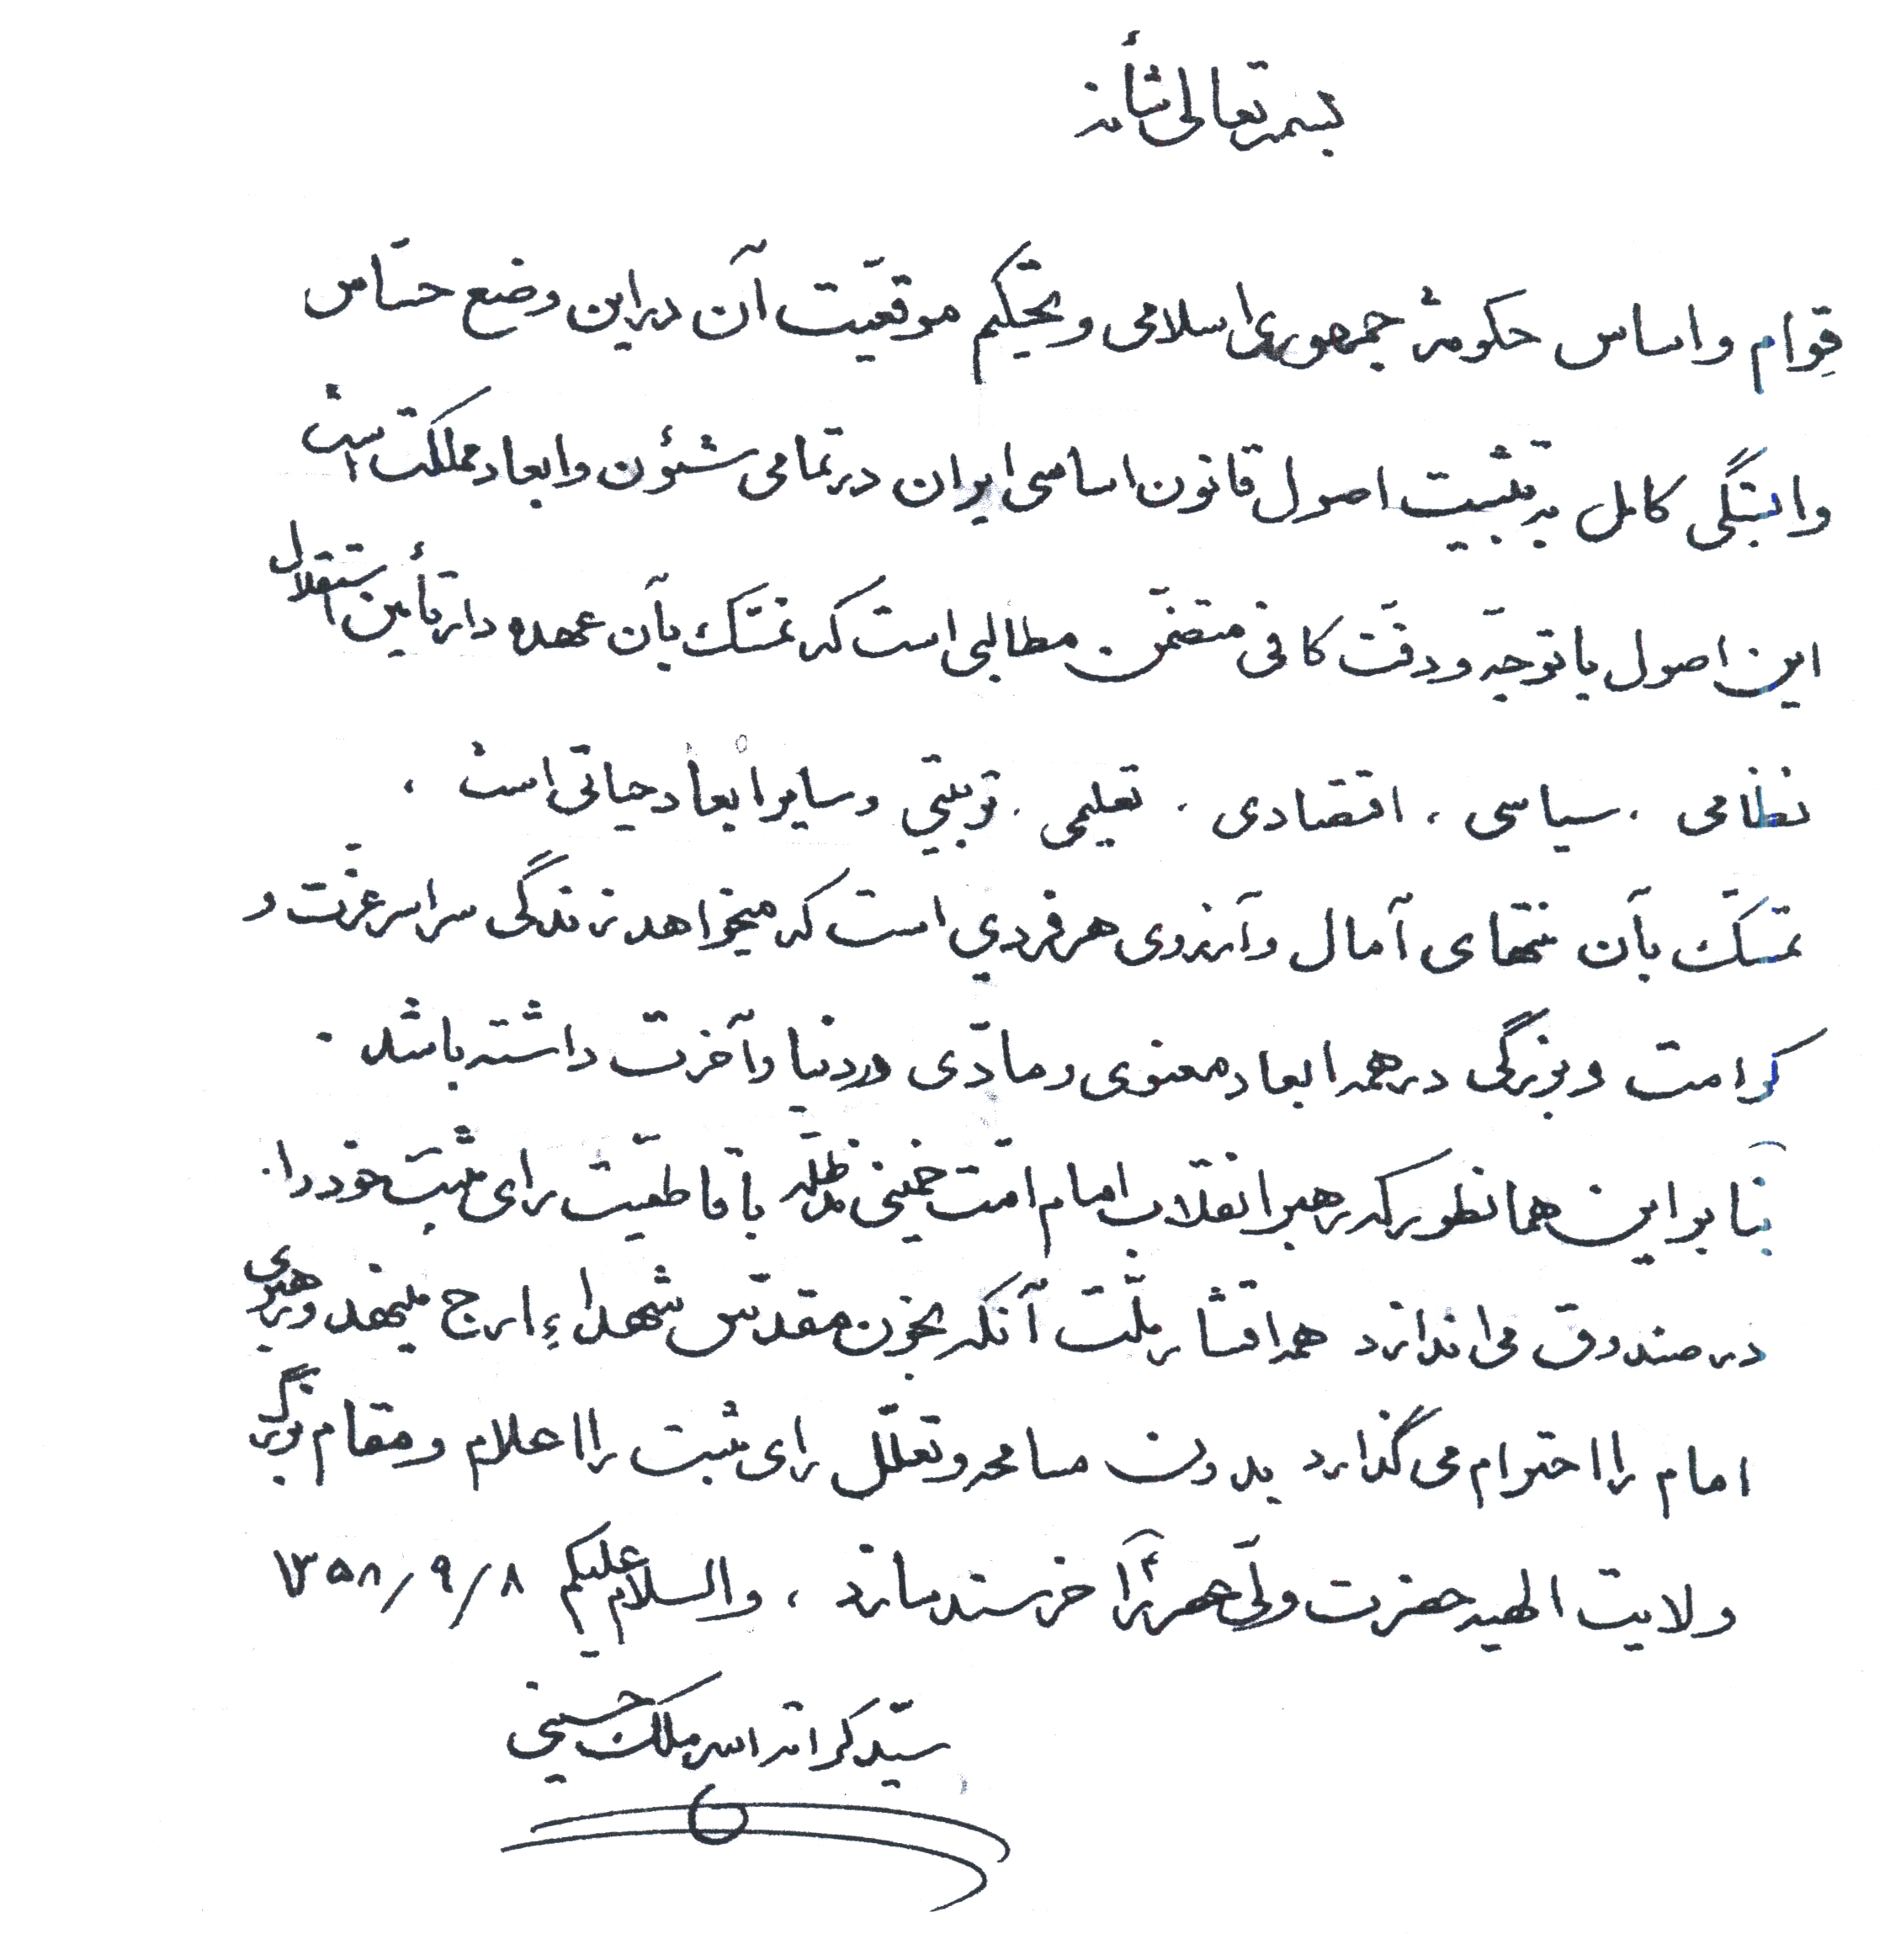 بسمه تعالی شأنه
قِوام و اساس حکومت جمهوری اسلامی و تحکیم موقعیّت آن در این وضع حسّاس
وابستگی کامل به تثبیت اصول قانون اساسی ایران در تمامی شئون و ابعاد مملکت است
این اصول با توجّه و دقّت کافی متضمّن مطالبی است که تمسّک بآن عهده دار تأمین استقلال
نظامی ، سیاسی ، اقتصادی ، تعلیمی ، تربیتی و سایر ابعاد حیاتی است ،
تمسّک بآن منتهای آمال و آرزوی هر فردی است که میخواهد زندگی سراسر عزّت و
کرامت و بزرگی در همه ابعاد معنوی و مادّی در دنیا و آخرت داشته باشد .
بنا بر این همانطور که رهبر انقلاب امام امّت خمینی مدّظلّه با قاطعیّت رای مثبت خود را .
در صندوق می اندازد همه اقشار ملّت آنکه بخون مقدّس شهداءِ ارج مینهد و رهبری
امام را احترام می گذارد بدون مسامحه و تعلّل رای مثبت را اعلام و مقام بزرگ
ولایت الهیه حضرت ولیّ عصر را خرسند سازد ، والسلام علیکم ۱۳۵۸/۹/۸
سیّد کرامة الله ملک حسینی